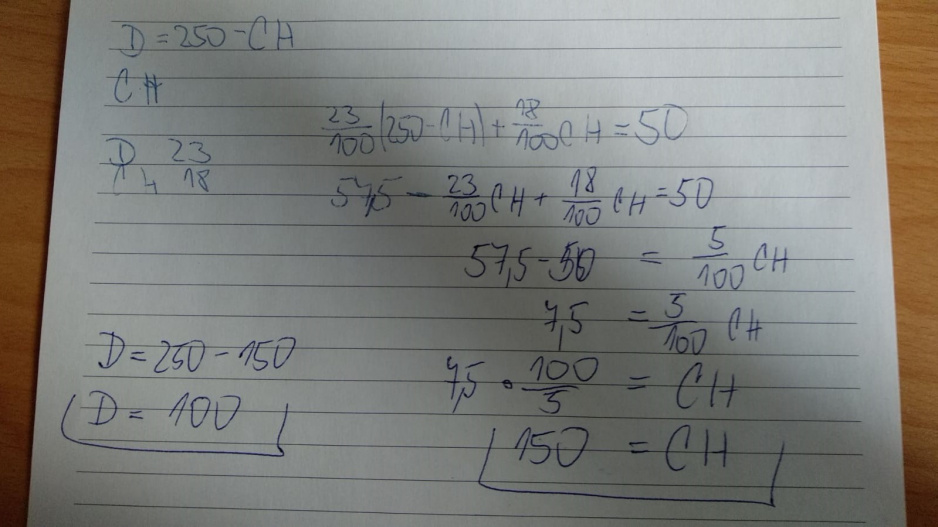 D = 250 - CH
CH
D 23
Ch 18
23/100 (250 - CH) + 18/100 CH = 50
57,5 - 23/100 CH + 18/100 CH = 50
57,5 - 50 = 5/100 CH
7,5 = 5/100 CH
7,5 · 100/5 = CH
150 = CH
D = 250 - 150
D = 100